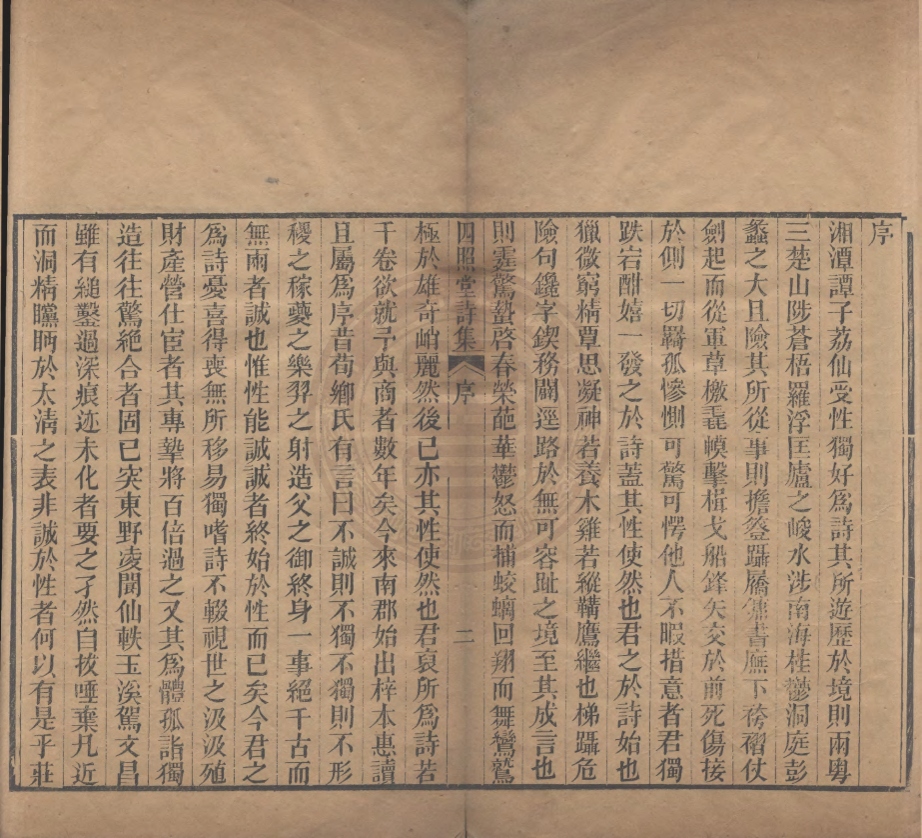 序
湘潭譚子荔仙受性獨好為詩其所遊歷於境則兩粵
三楚山陟蒼梧羅浮匡廬之峻水涉南海桂鬱洞庭彭
蠡之大且險其所從事則擔簦躡屩傭書廡下袴褶仗
劍起而從軍草檄毳幙擊楫戈船鋒矢交於前死傷接
於側一切羇孤慘惻可驚可愕他人不暇措意者君獨
跌宕酣嬉一發之於詩蓋其性使然也君之於詩始也
獵微窮精覃思凝神若養木雞若縱鞲鷹繼也梯躡危
險句鑱字鍥務闢逕路於無可容趾之境至其成言也
則霆驚蟄啓春榮葩華鬱怒而捕蛟螭回翔而舞鸞鷟
四照堂詩集 序 二
極於雄奇峭麗然後已亦其性使然也君裒所為詩若
干卷欲就予與商者數年矣今來南郡始出梓本惠讀
且屬為序昔荀鄉氏有言曰不誠則不獨不獨則不形
稷之稼夔之樂羿之射造父之御終身一事絕千古而
無兩者誠也惟性能誠誠者終始於性而已矣今君之
為詩憂喜得喪無所移易獨嗜詩不輟視世之汲汲殖
財產營仕宦者其專摯將百倍過之又其為體孤詣獨
造往往驚絕合者固已突東野凌閬仙軼玉溪駕文昌
雖有縋鑿過深痕迹未化者要之孑然自拔唾棄凡近
而洞精矘眄於太清之表非誠於性者何以有是乎莊